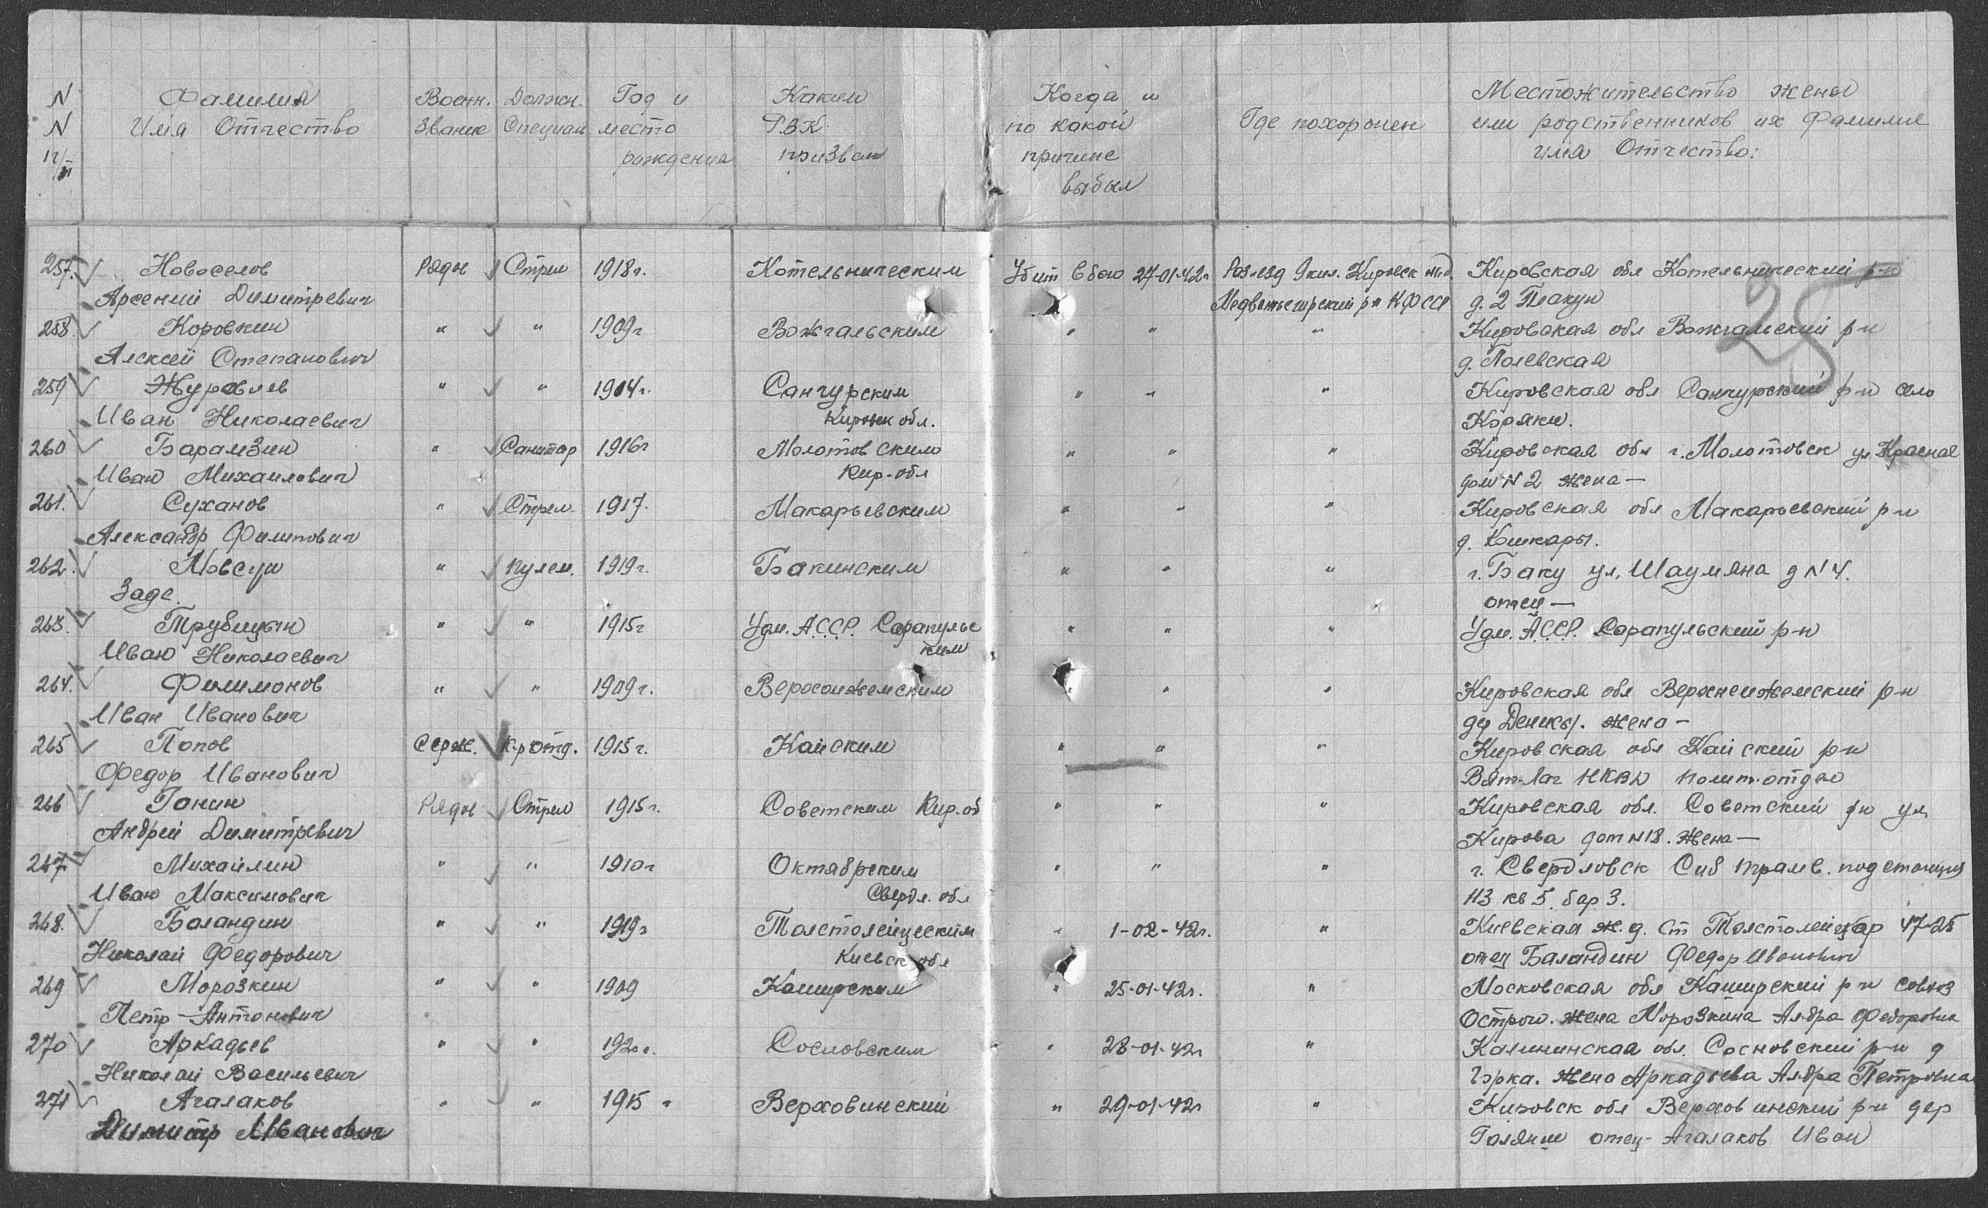 N N п/п
Фамилия Имя Отчество
Военн. Звание
Должн. Специал
Год и место рождения
Каким РВК призван
Когда и по какой причине выбыл
Где похоронен
Местожительство жены или родственников их Фамилие имя Отчество:
25
257. Новоселов Рядов Стрел 1918г. Котельническим Убит в бою 27-01-42г Раз-езд 9 кил. Кировск жд Кировская обл Котельнический р-н
Арсений Димитревич Медвежьегорский р-н КФССР д. 2 Плакун
258. Коровкин " " 1909г Вожгальским " " " Кировская обл Вожгальский р-н
Алексей Степанович д. Полевская
259 Журавлев " " 1904г. Санчурским " " " Кировская обл Санчурский р-н село
Иван Николаевич Кировск обл. Коряки.
260 Барамзин " Санитар 1916г Молотовским " " " Кировская обл г. Молотовск ул Красная
Иван Михаилович Кир-обл дом N 2 жена —
261. Суханов " Стрел. 1917. Макарьевским " " " Кировская обл Макарьевский р-н
Александр Филипович д. Кошкары.
262. Мовсум " Пулем. 1919г. Бакинским " " " г. Баку ул. Шаумяна д N 4.
Заде. отец —
263. Трубицын " " 1915г Удм. А.С.С.Р. Сарапульс " " " Удм. А.С.С.Р. Сарапульский р-н
Иван Николаевич ким
264. Филимонов " " 1909г. Верхошижемским " " " Кировская обл Верхнеижемский р-н
Иван Иванович дер Денисы. жена —
265 Попов Серж. К-р отд. 1915г. Кайским " " " Кировская обл Кайский р-н
Федор Иванович Вят-Лаг НКВД полит-отдел
266 Ганин Рядов Стрел 1915г. Советским Кир.об " " " Кировская обл. Советский р-н ул
Андрей Димитревич Кирова дом N 18. жена —
267. Михайлин " " 1910г Октябрским " " " г. Свердловск Сиб трамв. подстанция
Иван Максимович Свердл. обл N3 кв 5. бар 3.
268. Баландин " " 1919г Толстолецеским " 1-02-42г. " Киевская ж.д. Ст бар 47-25
Николай Федорович Киевск обл отец Баландин Федор Иванович
269 Морозкин " " 1909 Каширским " 25-01-42г. " Московская обл Каширский р-н совхоз
Петр Антонович жена Морозкина Ал-дра Федоровна
270 Аркадьев " " 1920г. Сосновским " 28-01-42г " Калининская обл. Сосновский р-н д
Николай Васильевич Горка. жена Аркадьева Ал-дра Петровна
271 Агалаков " " 1915 " Верховинский " 29-01-42г " Кировск обл Верховинский р-н дер
Димитр Иванович отец - Агалаков Иван